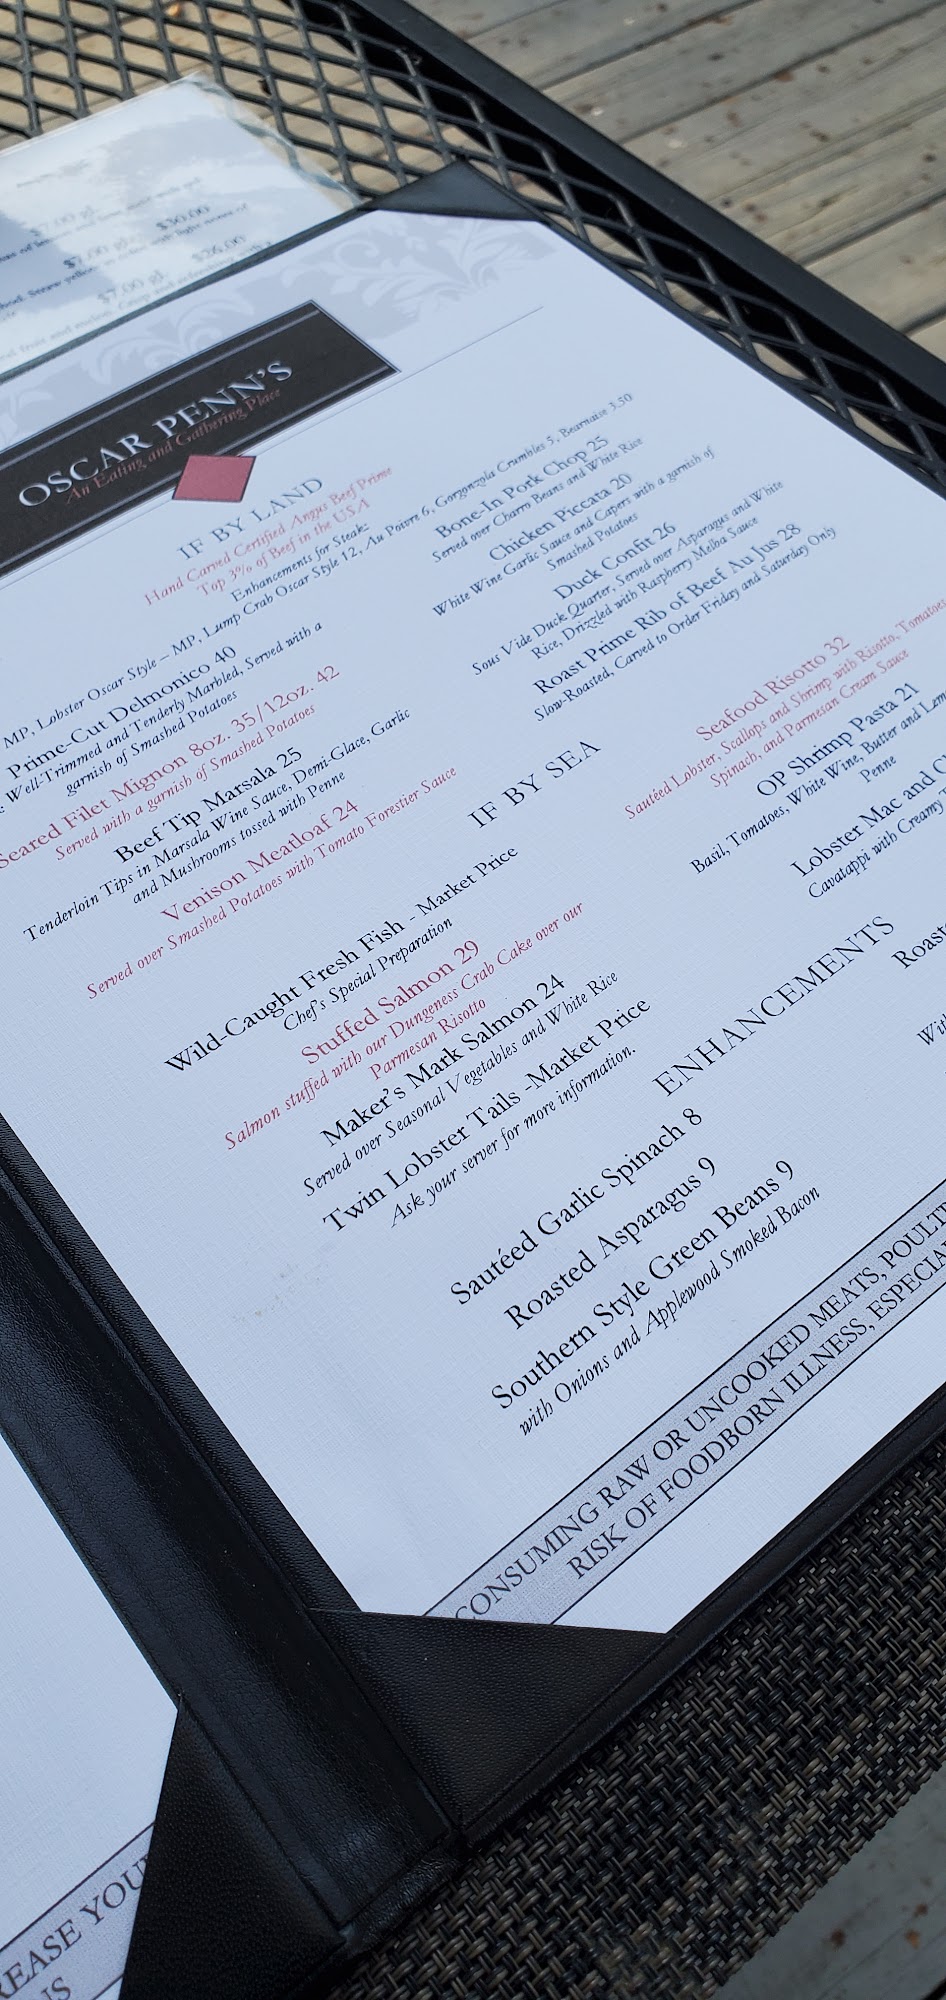 $7.00 gl.
$30.00
$7.00 gls.
$7.00 gl.
$26.00
OSCAR PENN'S
An Eating and Gathering Place
IF BY LAND
Hand Carved Certified Angus Beef Prime
Top 3% of Beef in the USA
Enhancements for Steak:
MP, Lobster Oscar Style – MP, Lump Crab Oscar Style 12, Au Poivre 6, Gorgonzola Crumbles 5, Bearnaise 3.50
Prime-Cut Delmonico 40
Well-Trimmed and Tenderly Marbled, Served with a
garnish of Smashed Potatoes
Seared Filet Mignon 8oz. 35/12oz. 42
Served with a garnish of Smashed Potatoes
Beef Tip Marsala 25
Tenderloin Tips in Marsala Wine Sauce, Demi-Glace, Garlic
and Mushrooms tossed with Penne
Venison Meatloaf 24
Served over Smashed Potatoes with Tomato Forestier Sauce
Bone-In Pork Chop 25
Served over Charro Beans and White Rice
Chicken Piccata 20
White Wine Garlic Sauce and Capers with a garnish of
Smashed Potatoes
Duck Confit 26
Sous Vide Duck Quarter, Served over Asparagus and White
Rice, Drizzled with Raspberry Melba Sauce
Roast Prime Rib of Beef Au Jus 28
Slow-Roasted, Carved to Order Friday and Saturday Only
IF BY SEA
Wild-Caught Fresh Fish - Market Price
Chef's Special Preparation
Stuffed Salmon 29
Salmon stuffed with our Dungeness Crab Cake over our
Parmesan Risotto
Maker's Mark Salmon 24
Served over Seasonal Vegetables and White Rice
Twin Lobster Tails -Market Price
Ask your server for more information.
Seafood Risotto 32
Sautéed Lobster, Scallops and Shrimp with Risotto, Tomatoes
Spinach, and Parmesan Cream Sauce
OP Shrimp Pasta 21
Basil, Tomatoes, White Wine, Butter and Lem
Penne
Lobster Mac and C
Cavatappi with Creamy
ENHANCEMENTS
Sautéed Garlic Spinach 8
Roasted Asparagus 9
Southern Style Green Beans 9
with Onions and Applewood Smoked Bacon
Roaste
Wit
CONSUMING RAW OR UNCOOKED MEATS, POULTR
RISK OF FOODBORN ILLNESS, ESPECIA
REASE YOUR
NS